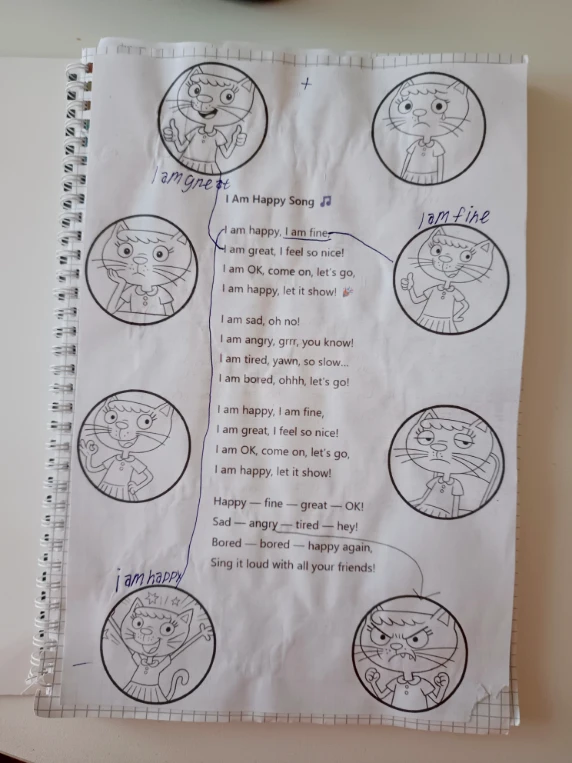 I am great
I Am Happy Song 🎵
I am fine
I am happy, I am fine,
I am great, I feel so nice!
I am OK, come on, let's go,
I am happy, let it show! 🎉
I am sad, oh no!
I am angry, grrr, you know!
I am tired, yawn, so slow...
I am bored, ohhh, let's go!
I am happy, I am fine,
I am great, I feel so nice!
I am OK, come on, let's go,
I am happy, let it show!
Happy — fine — great — OK!
Sad — angry — tired — hey!
Bored — bored — happy again,
Sing it loud with all your friends!
i am happy